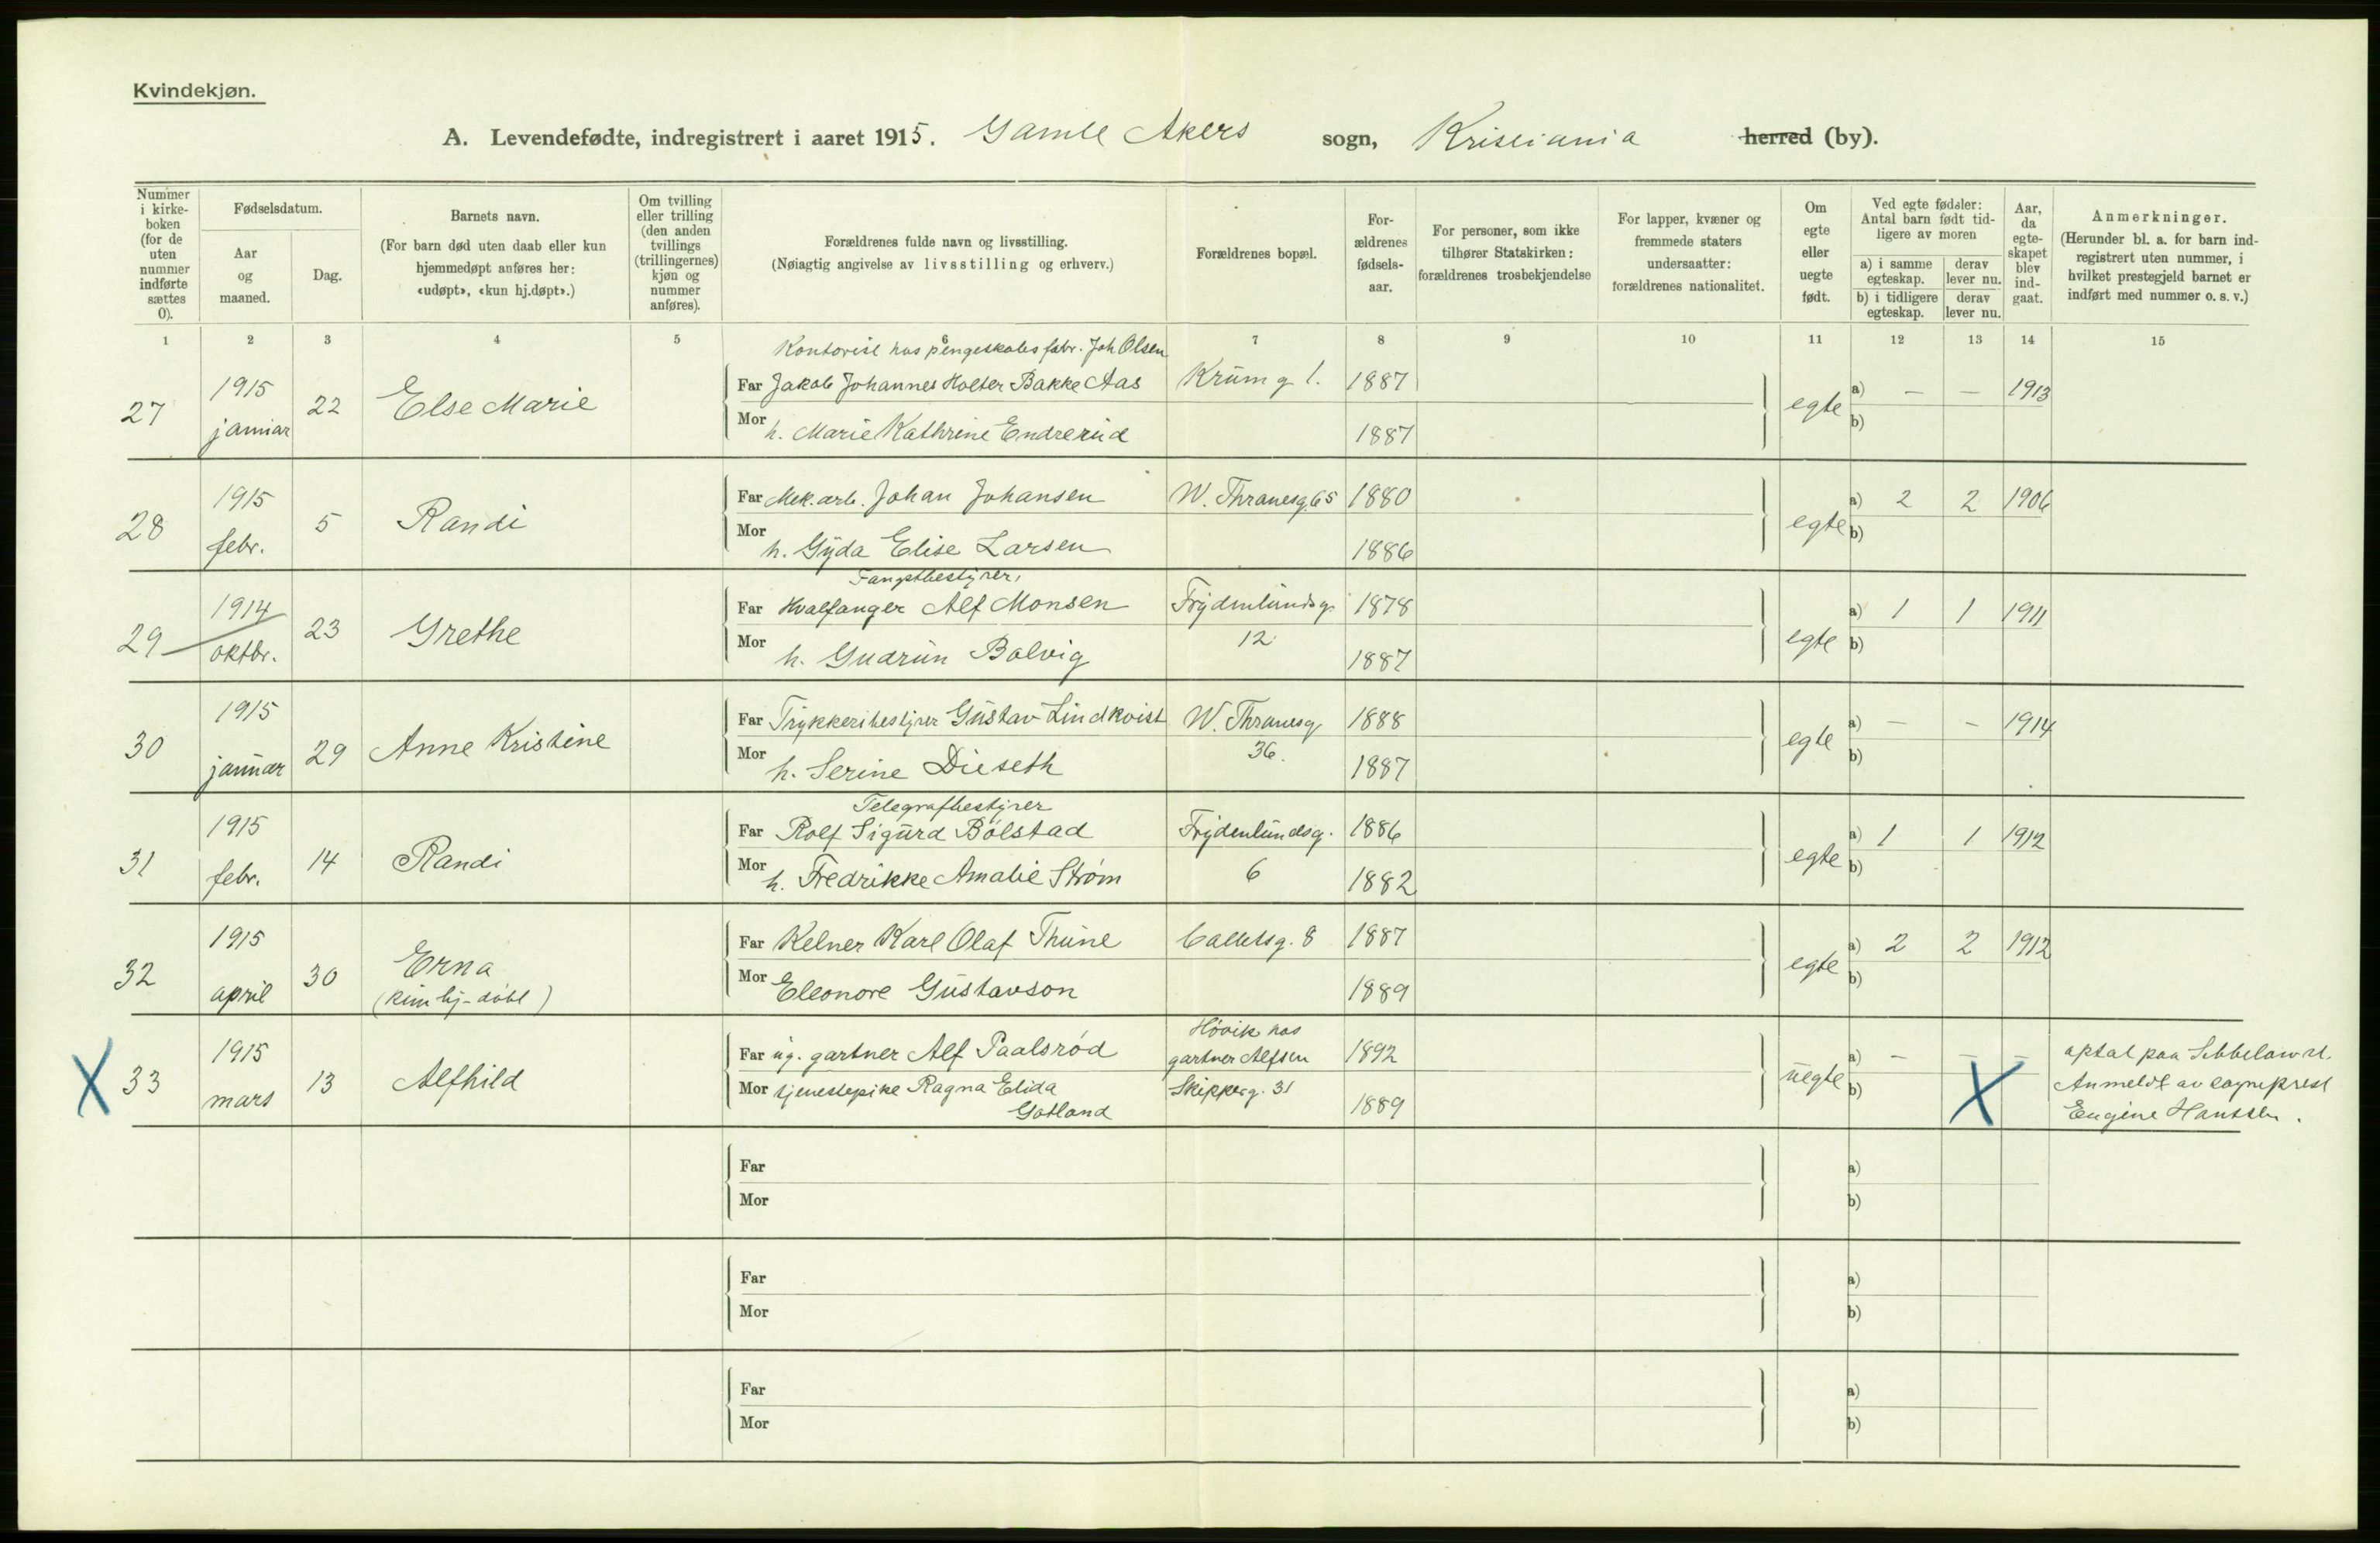 Kvindekjøn.
A. Levendefødte, indregistrert i aaret 1915. Gamle Akers sogn, Kristiania herred (by).
Nummer i kirke-boken (for de uten nummer indførte sættes 0).
Fødselsdatum.
Aar og maaned.
Dag.
Barnets navn.
(For barn død uten daab eller kun hjemmedøpt anføres her: «udøpt», «kun hj.døpt».)
Om tvilling eller trilling (den anden tvillings (trillingernes) kjøn og nummer anføres).
Forældrenes fulde navn og livsstilling.
(Nøiagtig angivelse av livsstilling og erhverv.)
Forældrenes bopæl.
For-ældrenes fødsels-aar.
For personer, som ikke tilhører Statskirken: forældrenes trosbekjendelse
For lapper, kvæner og fremmede staters undersaatter: forældrenes nationalitet.
Om egte eller uegte født.
Ved egte fødsler: Antal barn født tid-ligere av moren
a) i samme egteskap.
derav lever nu.
b) i tidligere egteskap.
derav lever nu.
Aar, da egte-skapet blev ind-gaat.
Anmerkninger.
(Herunder bl. a. for barn ind-registrert uten nummer, i hvilket prestegjeld barnet er indført med nummer o. s. v.)
1 2 3 4 5 6 7 8 9 10 11 12 13 14 15
Kontorist hos pengeskabsfabr. Joh Olsen
27 1915 januar 22 Else Marie Far Jakob Johannes Holter Bakke Aas Krumg 1. 1887 egte a) — — 1913
Mor h. Marie Kathrine Endrerud 1887 b)
28 1915 febr. 5 Randi Far Mek. arb. Johan Johansen W. Thranesg. 65 1880 egte a) 2 2 1906
Mor h. Gyda Elise Larsen 1886 b)
Fangstbestyrer,
29 1914 oktbr. 23 Grethe Far Hvalfanger Alf Monsen Frydenlundsg. 1878 egte a) 1 1 1911
Mor h. Gudrun Bolvig 12 1887 b)
30 1915 januar 29 Anne Kristine Far Trykkeribestyrer Gustav Lindkvist W. Thranesg 1888 egte a) — — 1914
Mor h. Serine Dieseth 36. 1887 b)
Telegrafbestyrer
31 1915 febr. 14 Randi Far Rolf Sigurd Bölstad Frydenlundsg. 1886 egte a) 1 1 1912
Mor h. Fredrikke Amalie Strøm 6 1882 b)
32 1915 april 30 Erna Far Kelner Karl Olaf Thune Calletsg. 8 1887 egte a) 2 2 1912
(kun hj-döbt) Mor Eleonore Gustavson 1889 b)
Hövik hos
X 33 1915 mars 13 Alfhild Far ug. gartner Alf Paalsröd gartner Alfsen 1892 uegte a) — — —
Mor tjenestepike Ragna Elida Gotland Skipperg. 31 1889 b) X
Anmeldt av sogneprest
Eugène Hanssen.
Far a)
Mor b)
Far a)
Mor b)
Far a)
Mor b)